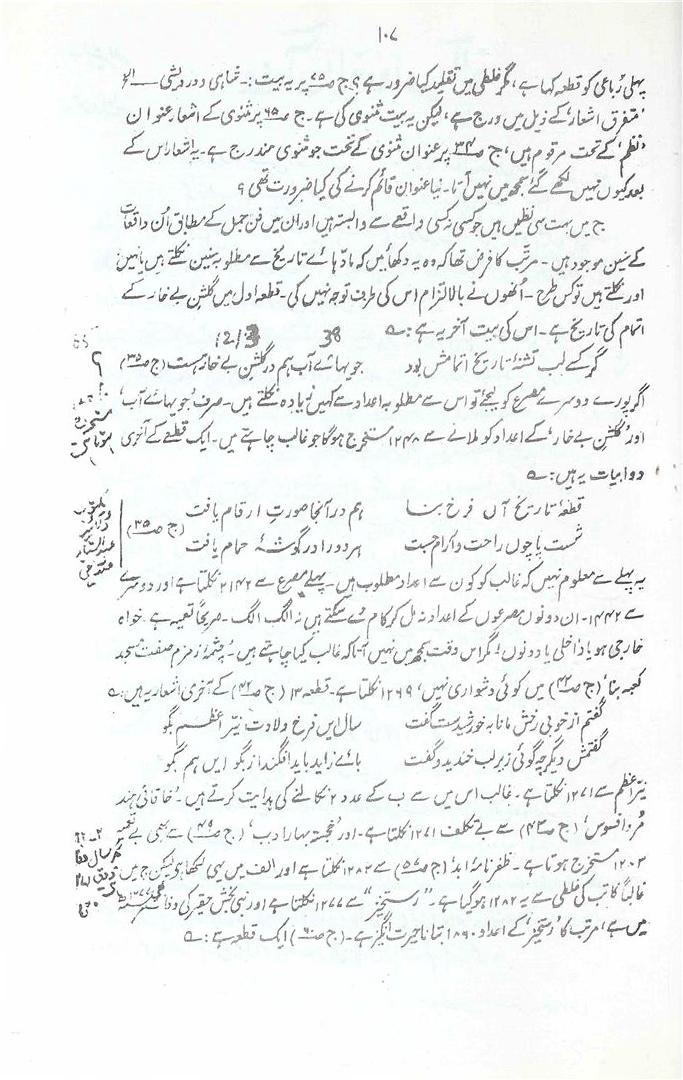 ۱۰۷
پہلی رُباعی کو قطعہ کہا ہے، مگر غلطی میں تقلید کیا ضرور ہے؟ ج صـ۷۵ پر یہ بیت:۔ شاہی و درویشی ـــ الخ
'متفرق اشعار' کے ذیل میں درج ہے، لیکن یہ بیت مثنوی کی ہے۔ ج صـ۶۵ پر مثنوی کے اشعار عنوان
'نظم' کے تحت مرقوم ہیں، ج صـ۳۴ پر عنوان مثنوی کے تحت جو مثنوی مندرج ہے۔ یہ اشعار اس کے
بعد کیوں نہیں لکھے گئے، سمجھ میں نہیں آتا۔ نیا عنوان قائم کرنے کی کیا ضرورت تھی؟
ج میں بہت سی نظمیں ہیں جو کسی نہ کسی واقعے سے وابستہ ہیں اور ان میں فن جمل کے مطابق اُن واقعات
کے سنین موجود ہیں۔ مرتب کا فرض تھا کہ وہ یہ دکھائیں کہ مادّہائے تاریخ سے مطلوبہ سنین نکلتے ہیں یا نہیں
اور نکلتے ہیں تو کس طرح۔ اُنھوں نے بالالتزام اس کی طرف توجہ نہیں کی۔ قطعہ اول میں گلشن بے خار کے
اتمام کی تاریخ ہے۔ اس کی بیت آخر یہ ہے:
1213 38
گر کے لب تشنۂ تاریخ اتمامش بود جوئے ہائے آب ہم در گلشن بے خار ہست (ج صـ۳۵)
اگر پورے دوسرے مصرع کو لیجئے تو اس سے مطلوبہ اعداد سے کہیں زیادہ نکلتے ہیں۔ صرف 'جو یہائے آب'
اور 'گلشن بے خار' کے اعداد کو ملانے سے ۱۲۴۸ مستخرج ہوگا جو غالب چاہتے ہیں۔ ایک قطعے کے آخری
دو ابیات یہ ہیں:
قطعۂ تاریخ آں فرخ بنا ہم در آنجا صورتِ ارقام یافت
شست پا چوں راحت و آرام جست ہر دو را در گوشۂ حمام یافت (ج صـ۳۵)
یہ پہلے سے معلوم نہیں کہ غالب کو کون سے اعداد مطلوب ہیں۔ پہلے مصرع سے ۲۱۴۲ نکلتا ہے اور دوسرے
سے ۱۴۴۲۔ ان دونوں مصرعوں کے اعداد نہ مل کر کام دے سکتے ہیں نہ الگ الگ۔ صریحاً تعمیہ ہے۔ خواہ
خارجی ہو یا داخلی یا دونوں! مگر اس وقت سمجھ میں نہیں آتا کہ غالب کیا چاہتے ہیں۔ 'چشمۂ زمزم صفت مسجد
کعبہ بنا' (ج صـ۴۲) میں کوئی دشواری نہیں، ۱۲۶۹ نکلتا ہے۔ قطعہ ۱۳ (ج صـ۴۲) کے آخری اشعار یہ ہیں:
گفتم از خوبی رخش مانا بہ خورشیدست گفت سال ایں فرخ ولادت نیّر اعظم بگو
گفتمش دیگر چہ گوئی زیر لب خندید و گفت بائے زاید باید افگند از بگو ایں ہم مگو
نیّر اعظم سے ۱۲۷۱ نکلتا ہے۔ غالب اس میں سے ب کے عدد ۲ نکالنے کی ہدایت کرتے ہیں۔ 'خاقانی ہند
مُرد افسوس' (ج صـ۴۳) سے بے تکلف ۱۲۷۱ نکلتا ہے۔ اور 'خجستہ بہار ادب' (ج صـ۴۵) سے بھی بے تعمیہ
۱۲۸۳ مستخرج ہوتا ہے۔ ظفر نامۂ ابد (ج صـ۵۷) سے ۱۲۸۳ نکلتا ہے اور الف میں یہی لکھا ہے، لیکن ج میں
غالباً کاتب کی غلطی سے یہ ۱۲۸۲ ہو گیا ہے۔ "رستخیز" سے ۱۲۷۷ نکلتا ہے اور نبی بخش حقیر کی وفات
میں ہے، مرتب کا 'رستخیز' کے اعداد ۱۸۶۰ بتانا حیرت انگیز ہے۔ (ج صـ۶۰) ایک قطعہ ہے: